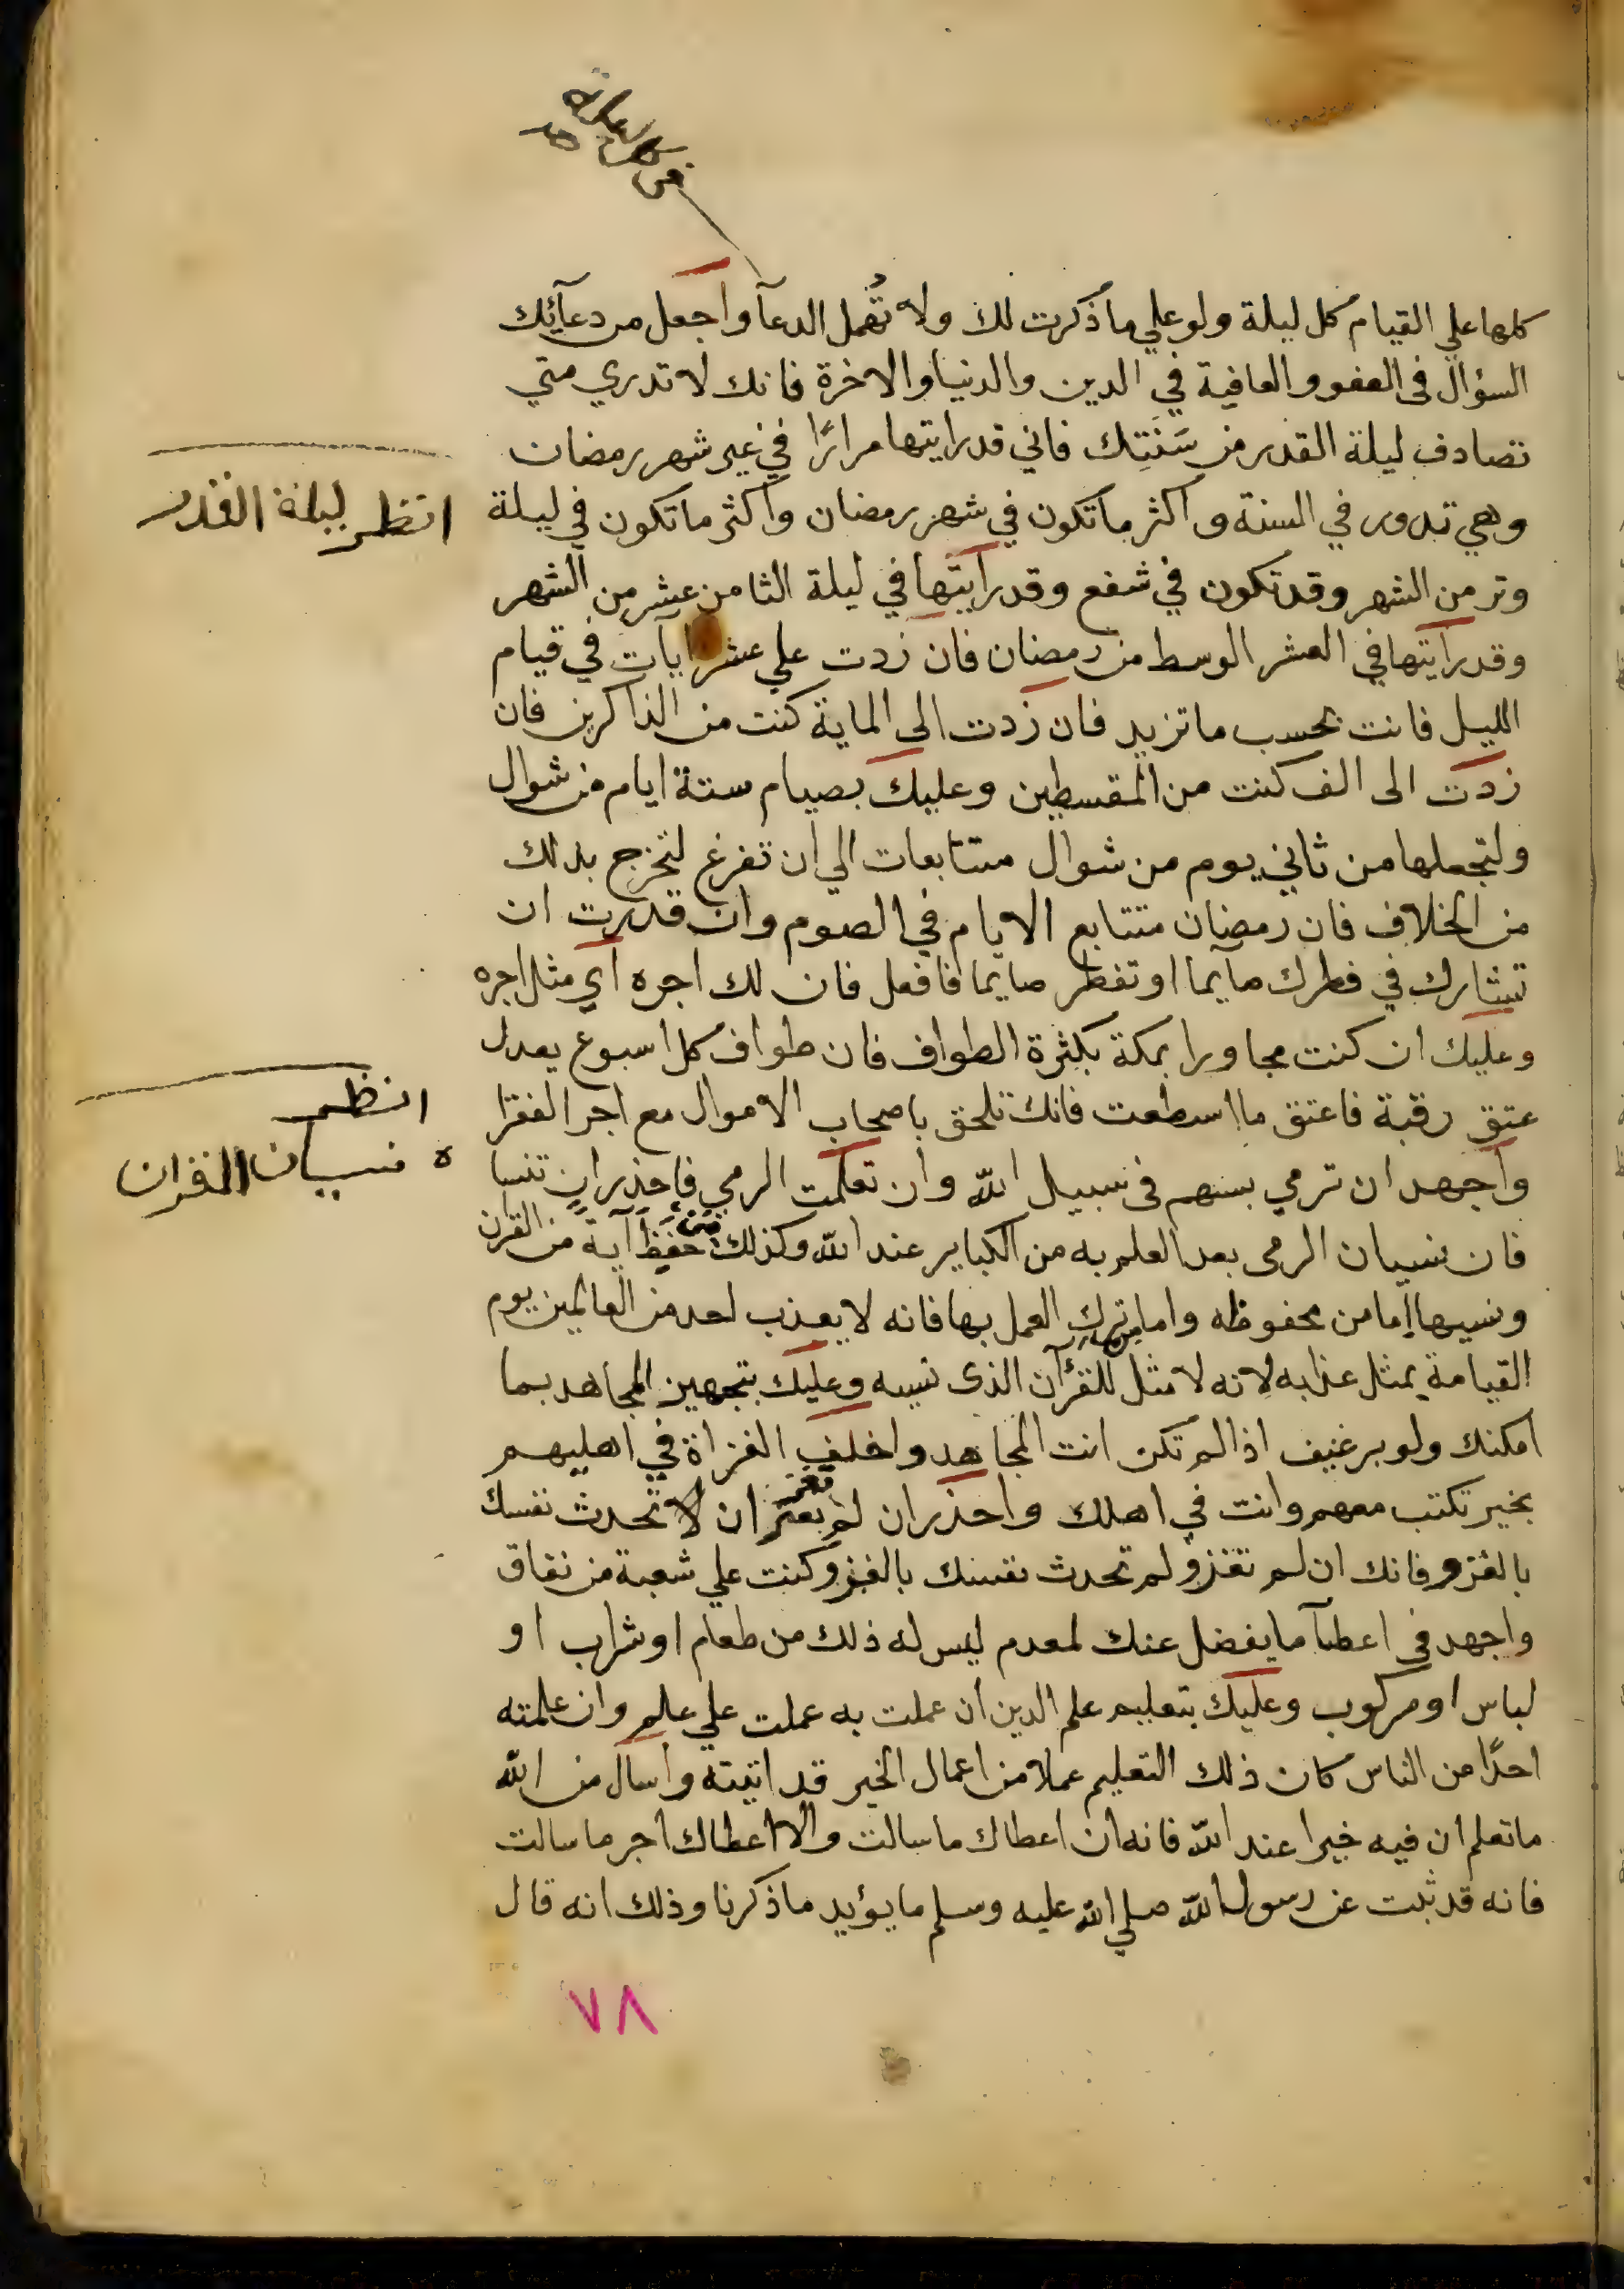 كلها علي القيام كل ليلة ولو علي ما ذكرت لك ولا تهمل الدعآ واجعل من دعآئك
السؤال فى العفو والعافية في الدين والدنيا والاخرة فانك لا تدري متي
تصادف ليلة القدر من سَنَتِك فاني قد رايتها مرارًا في غير شهر رمضان
انظر ليلة القدر
وهي تدور في السنة واكثر ما تكون في شهر رمضان واكثر ما تكون في ليلة
وتر من الشهر وقد تكون في شفع وقد رآيتها في ليلة الثامن عشر من الشهر
وقد رآيتها في العشر الوسط من رمضان فان زدت علي عشر ايات في قيام
الليل فانت بحسب ما تزيد فان زدت الى الماية كنت من الذاكرين فان
زدت الى الف كنت من المقسطين وعليك بصيام ستة ايام من شوال
ولتجعلها من ثاني يوم من شوال متتابعات الي ان تفرغ لتخرج بذلك
من الخلاف فان رمضان متتابع الايام في الصوم وان قدرت ان
تشارك في فطرك صآيما او تفطر صايما فافعل فان لك اجره اي مثل اجره
وعليك ان كنت مجاورا بمكة بكثرة الطواف فان طواف كل اسبوع يعدل
انظر
عتق رقبة فاعتق ما اسطعت فانك تلحق باصحاب الاموال مع اجر الفقرا
نسيان القران
واجهد ان ترمي بسهم فى سبيل الله وان تعلمت الرمي فاحذر ان تنسا
فان نسيان الرمى بعد العلم به من الكباير عند الله وكذلك مَن حَفِظَ آيةً من القرن
ونسيها إما من محفوظه واما ترك العمل بها فانه لا يعذب احد من العالمين يوم
القيامة بمثل عذابه لانه لا مثل للقرآن الذى نسيه وعليك بتجهيز المجاهد بما
امكنك ولو برغيف اذا لم تكن انت المجاهد واخلف الغزاة في اهليهم
بخير تكتب معهم وانت في اهلك واحذر ان لم تغز ان لا تحدث نفسك
بالغزو فانك ان لم تغزو لم تحدث نفسك بالغزو كنت علي شعبة من نفاق
واجهد في اعطآ ما يفضل عنك لمعدم ليس له ذلك من طعام او شراب او
لباس او مركوب وعليك بتعليم علم الدين ان عملت به عملت علي علم وان علمته
احدًا من الناس كان ذلك التعليم عملا من اعمال الخير قد اتيته واسال من الله
ما تعلم ان فيه خيرا عند الله فانه ان اعطاك ما سالت والا اعطاك اجر ما سالت
فانه قد ثبت عن رسول الله صلي الله عليه وسلم ما يؤيد ما ذكرنا وذلك انه قال
٧٨